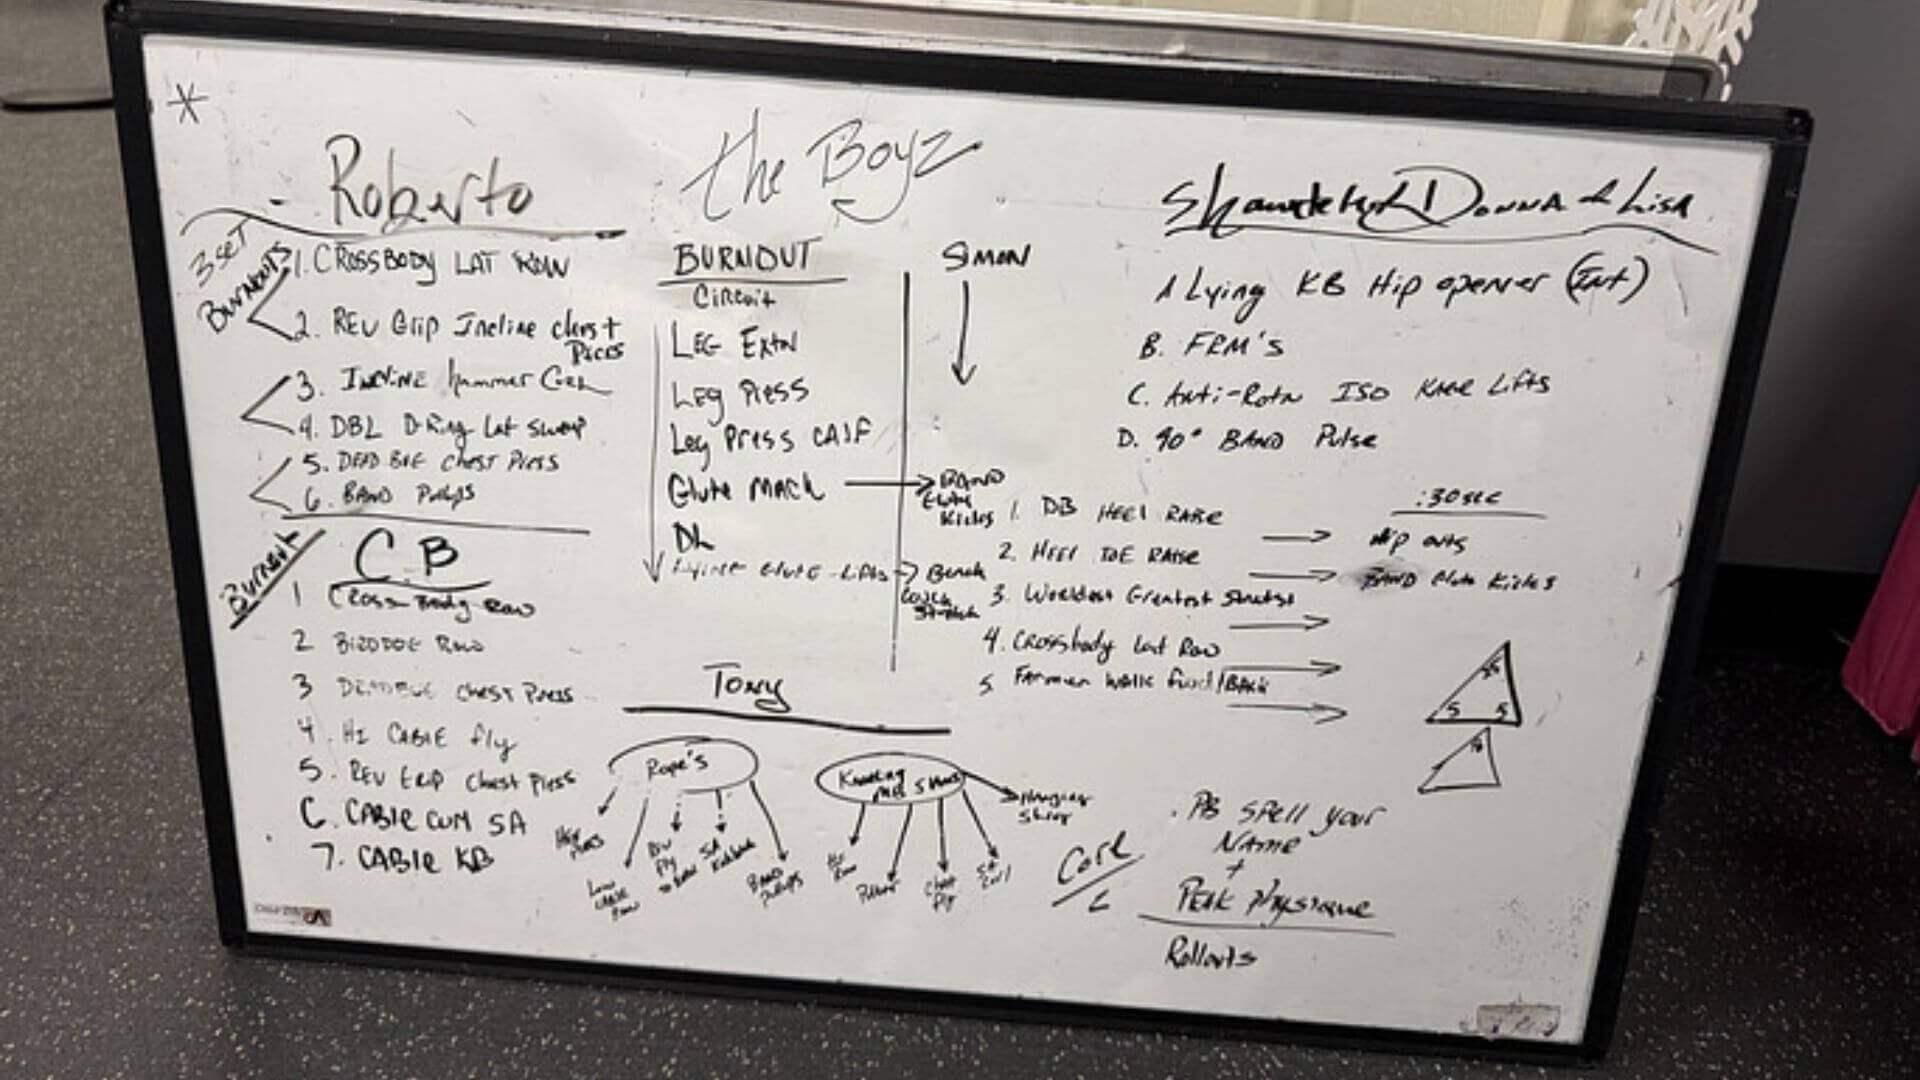 Roberto
3 SET
BURNOUTS
1. CROSSBODY LAT ROW
2. REV Grip Incline chest
Press
3. INCLINE hammer Curl
4. DBL D-Ring Lat Sweep
5. DEAD BUG CHEST PRESS
6. BAND Pullups
Burnout
CB
1 Cross Body Row
2 BIRDDOG ROW
3 DEADBUG CHEST PRESS
4. HI CABLE fly
5. REV GRIP Chest Press
6. CABLE CURL SA
7. CABLE KB
the Boyz
BURNOUT
Circuit
LEG EXTN
Leg PRESS
Leg PRESS CALF
Glute MACH
DL
Lying GLUTE-Lifts
SIMON
BAND
Glute
Kicks
Bench
Couch
Stretch
Tony
Rope's
High
Rows
Low
CABLE
Row
Fly
SA
Kickback
BAND
Pullups
Kneeling
Row
Chest
Fly
SA
Curl
DONNA & Lisa
A Lying KB Hip opener (Int)
B. FRM'S
C. Anti-Rotn ISO KNEE Lifts
D. 90° BAND Pulse
:30 sec
1. DB HEEL RAISE
Hip outs
2. HEEL TOE RAISE
BAND Glute Kicks
3. Worldest Greatest Stretst
4. Crossbody Lat Row
5. Farmer walk fwd/BACK
5
5
Core
PB SPELL your
NAME
+
PEAK Physique
Rollouts